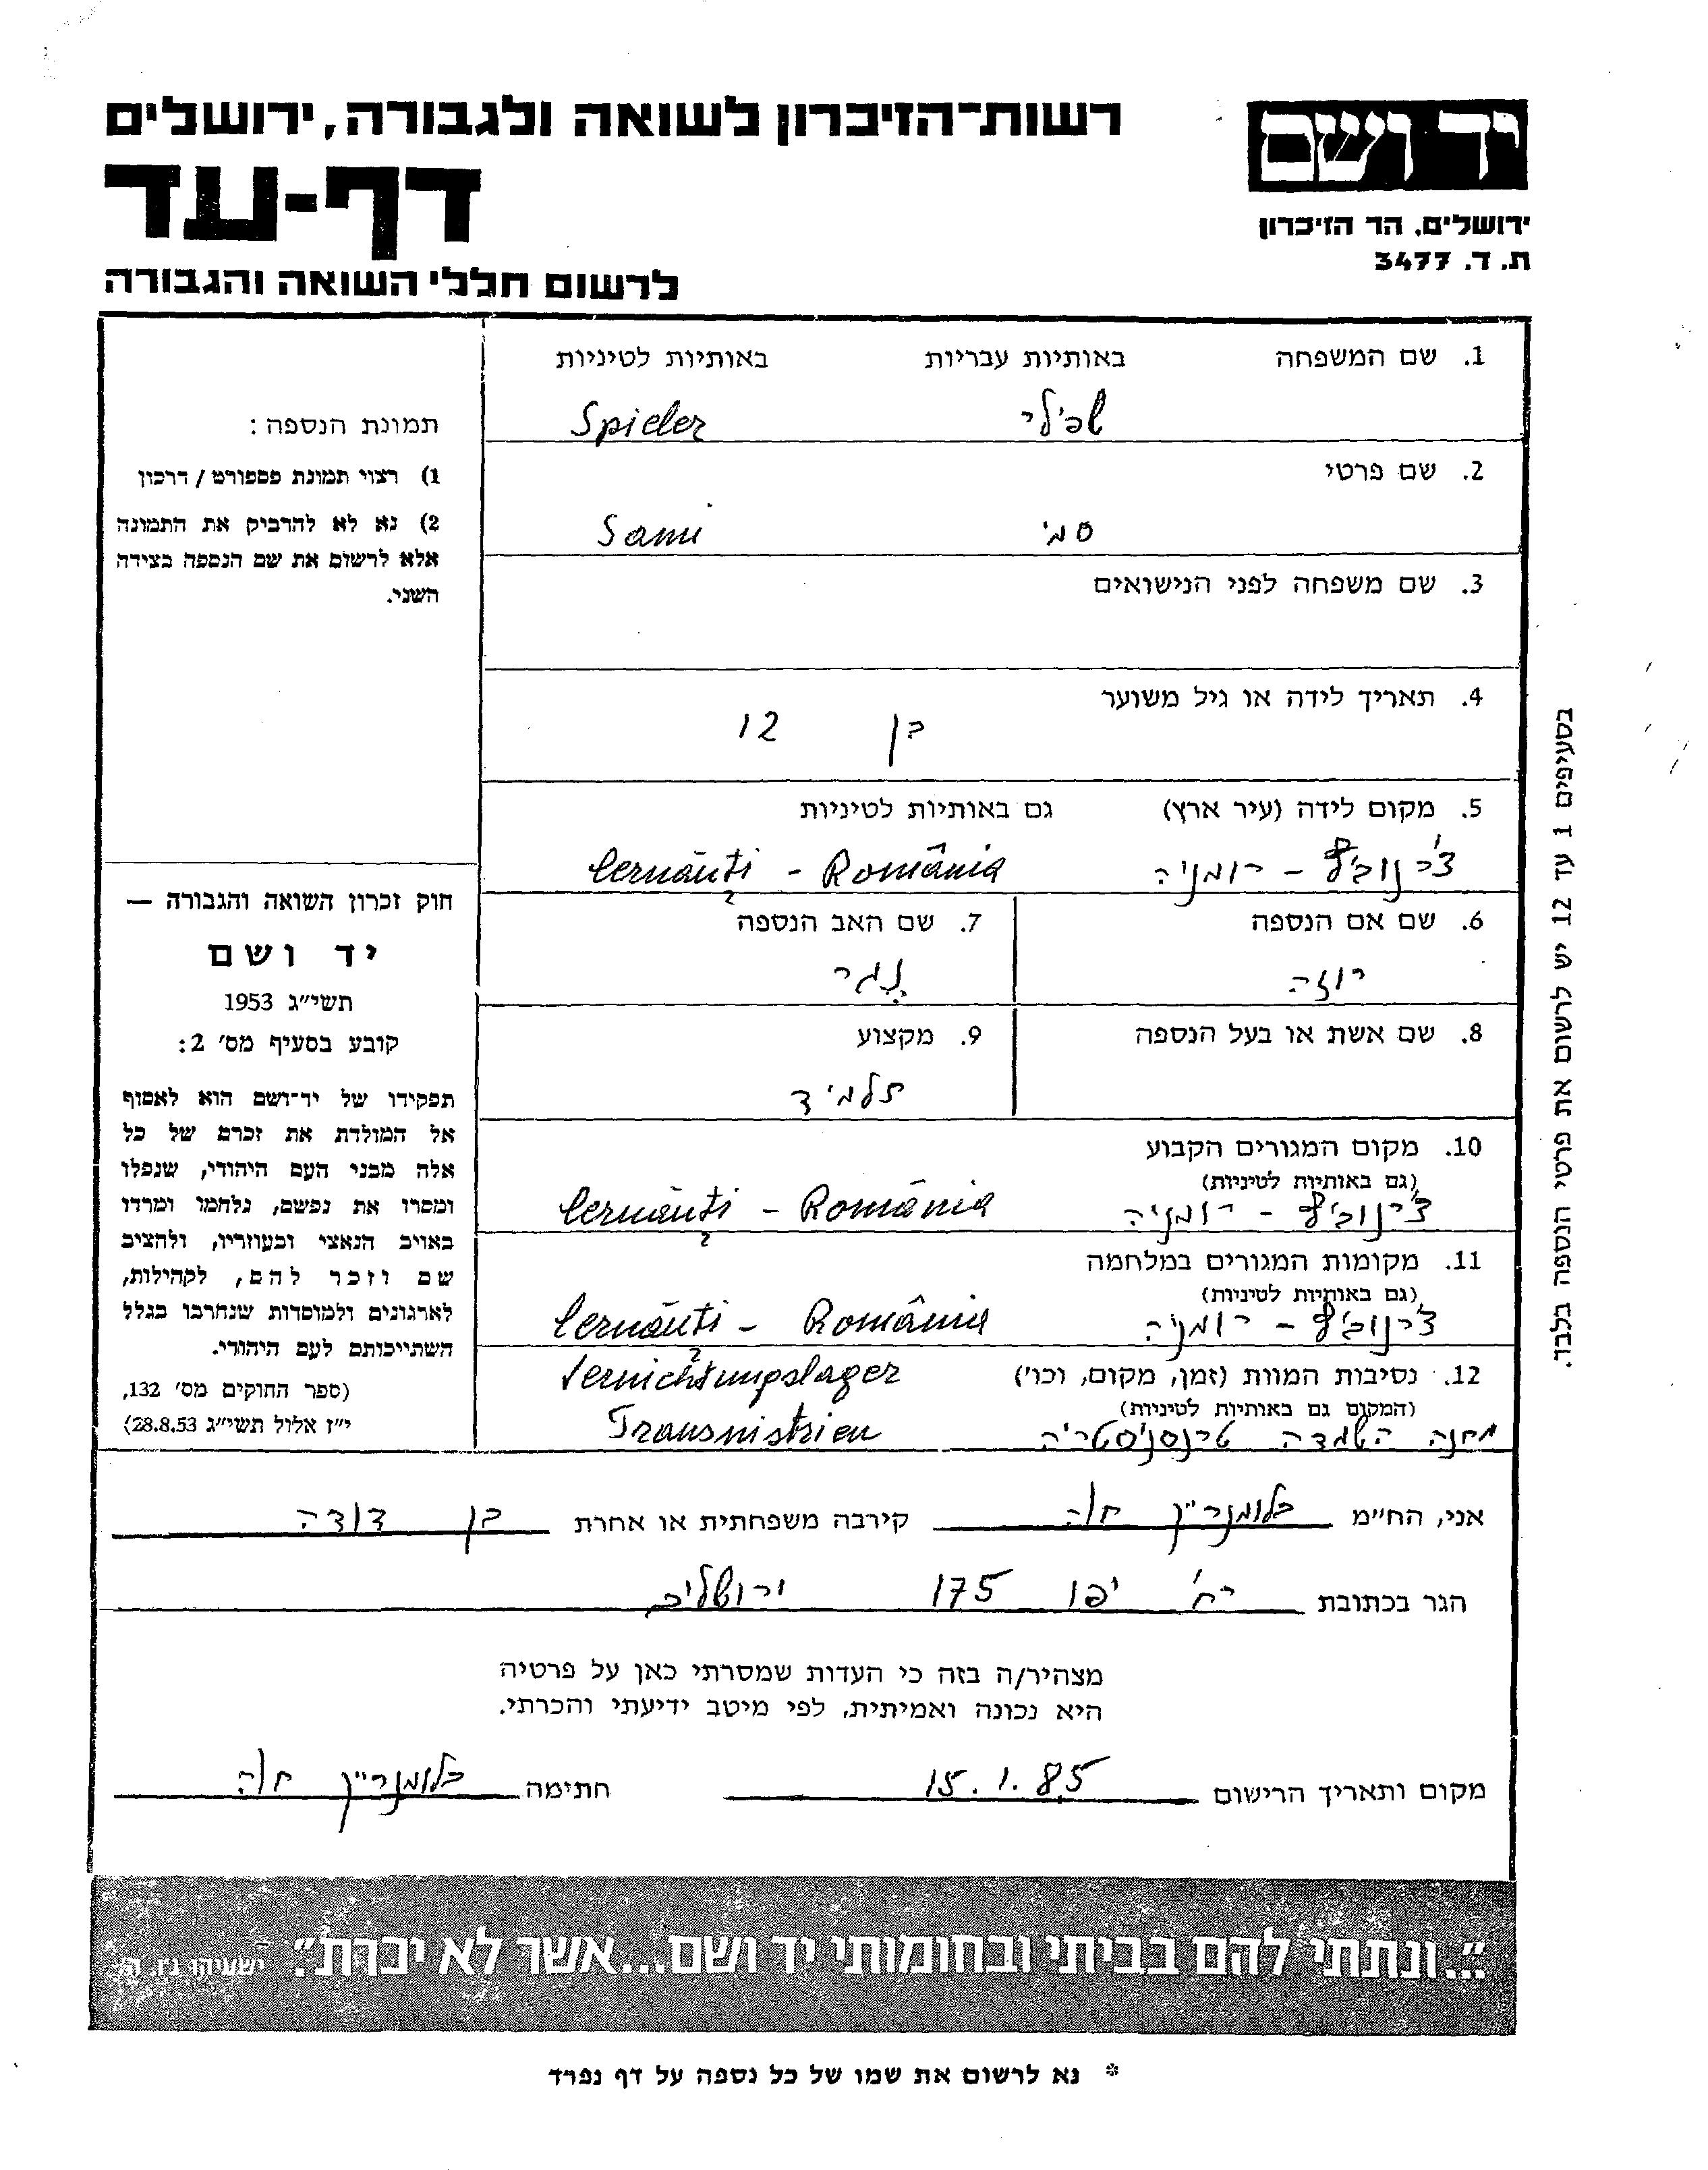 רשות־הזיכרון לשואה ולגבורה, ירושלים
דף-עד
לרשום חללי השואה והגבורה
יד ושם
ירושלים, הר הזיכרון
ת. ד. 3477
1. שם המשפחה באותיות עבריות באותיות לטיניות
שפילר Spieler
2. שם פרטי
סמי Sami
3. שם משפחה לפני הנישואים
4. תאריך לידה או גיל משוער
בן 12
5. מקום לידה (עיר ארץ) גם באותיות לטיניות
צ'רנוביץ - רומניה Cernăuți - România
6. שם אם הנספה 7. שם האב הנספה
רוזה
8. שם אשת או בעל הנספה 9. מקצוע
תלמיד
10. מקום המגורים הקבוע
(גם באותיות לטיניות)
צ'רנוביץ - רומניה Cernăuți - România
11. מקומות המגורים במלחמה
(גם באותיות לטיניות)
צ'רנוביץ - רומניה Cernăuți - România
12. נסיבות המוות (זמן, מקום, וכו') Vernichtungslager
(המקום גם באותיות לטיניות)
מחנה השמדה טרנסניסטריה Transnistrien
תמונת הנספה :
1) רצוי תמונת פספורט / דרכון
2) נא לא להדביק את התמונה
אלא לרשום את שם הנספה בצידה
השני.
חוק זכרון השואה והגבורה —
יד ושם
תשי״ג 1953
קובע בסעיף מס' 2:
תפקידו של יד־ושם הוא לאסוף
אל המולדת את זכרם של כל
אלה מבני העם היהודי, שנפלו
ומסרו את נפשם, נלחמו ומרדו
באויב הנאצי ובעוזריו, ולהציב
שם וזכר להם, לקהילות,
לארגונים ולמוסדות שנחרבו בגלל
השתייכותם לעם היהודי.
(ספר החוקים מס' 132,
י״ז אלול תשי״ג 28.8.53)
בסעיפים 1 עד 12 יש לרשום את פרטי הנספה בלבד.
אני, החי״מ בלומנריין חוה קירבה משפחתית או אחרת בן דודה
הגר בכתובת רח' יפו 175 ירושלים
מצהיר/ה בזה כי העדות שמסרתי כאן על פרטיה
היא נכונה ואמיתית, לפי מיטב ידיעתי והכרתי.
מקום ותאריך הרישום 15.1.85 חתימה בלומנריין חוה
"...ונתתי להם בביתי ובחומותי יד ושם...אשר לא יכרת". ישעיהו נו, ה.
* נא לרשום את שמו של כל נספה על דף נפרד